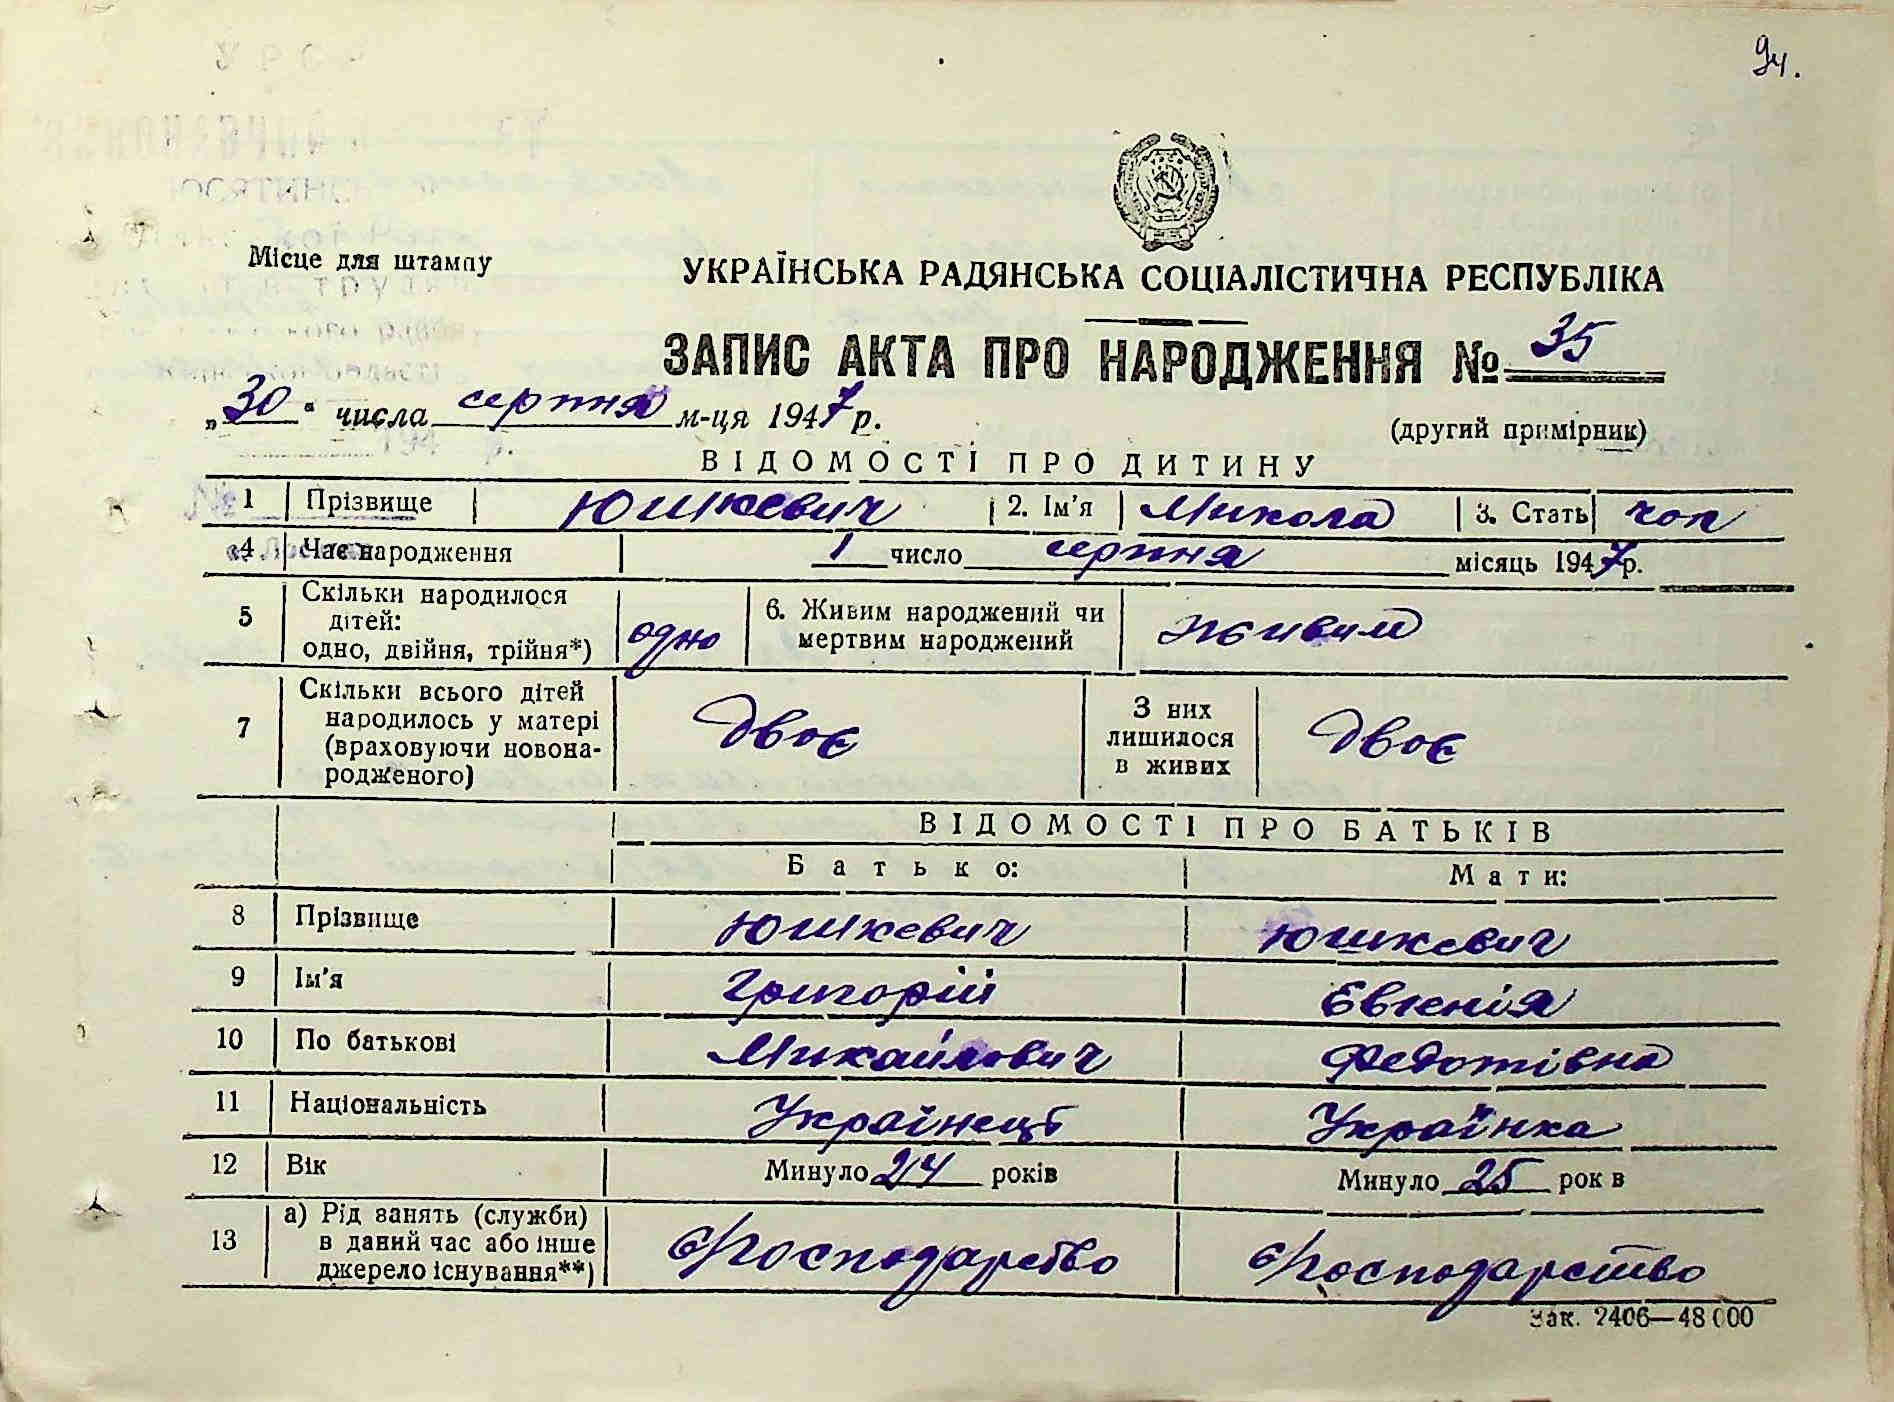 94.
Місце для штампу
УКРАЇНСЬКА РАДЯНСЬКА СОЦІАЛІСТИЧНА РЕСПУБЛІКА
ЗАПИС АКТА ПРО НАРОДЖЕННЯ № 35
„30“ числа серпня м-ця 1947 р.
(другий примірник)
ВІДОМОСТІ ПРО ДИТИНУ
1 Прізвище Юшкевич 2. Ім'я Микола 3. Стать чол
4 Час народження 1 число серпня місяць 1947 р.
5 Скільки народилося дітей: одно, двійня, трійня*) одно 6. Живим народжений чи мертвим народжений живим
7 Скільки всього дітей народилось у матері (враховуючи новонародженого) двоє З них лишилося в живих двоє
ВІДОМОСТІ ПРО БАТЬКІВ
Батько: Мати:
8 Прізвище Юшкевич Юшкевич
9 Ім'я Григорій Євгенія
10 По батькові Михайлович Федотівна
11 Національність Українець Українка
12 Вік Минуло 24 років Минуло 25 рок в
13 а) Рід занять (служби) в даний час або інше джерело існування**) господарство господарство
Зак. 2406—48000